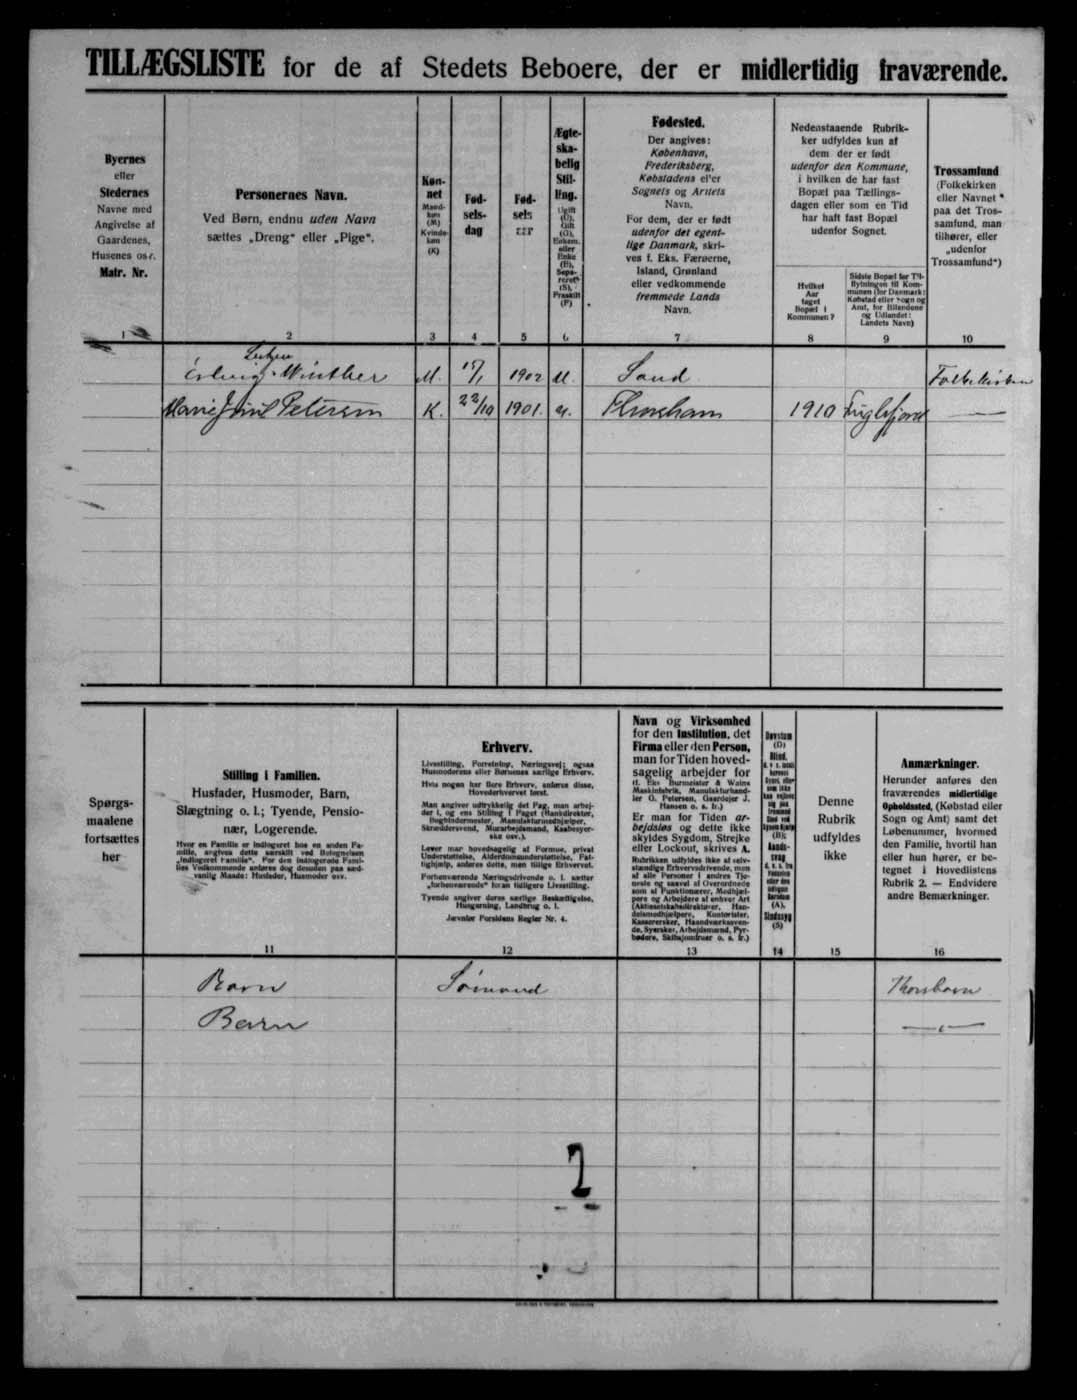 TILLÆGSLISTE for de af Stedets Beboere, der er midlertidig fraværende.
Byernes
eller
Stedernes
Navne med
Angivelse af
Gaardenes,
Husenes osv.
Matr. Nr.
1
Personernes Navn.
Ved Børn, endnu uden Navn
sættes „Dreng“ eller „Pige“.
2
Køn-
net
Mand-
køn
(M)
Kvinde-
køn
(K)
3
Fød-
sels-
dag
4
Fød-
sels
aar
5
Ægte-
ska-
belig
Stil-
ling.
Ugift
(U),
Gift
(G),
Enkem.
eller
Enke
(E),
Sepa-
reret
(S),
Fraskilt
(F)
6
Fødested.
Der angives:
København,
Frederiksberg,
Købstadens eller
Sognets og Amtets
Navn.
For dem, der er født
udenfor det egent-
lige Danmark, skri-
ves f. Eks. Færøerne,
Island, Grønland
eller vedkommende
fremmede Lands
Navn.
7
Nedenstaaende Rubrik-
ker udfyldes kun af
dem der er født
udenfor den Kommune,
i hvilken de har fast
Bopæl paa Tællings-
dagen eller som en Tid
har haft fast Bopæl
udenfor Sognet.
Hvilket
Aar
taget
Bopæl i
Kommunen?
8
Sidste Bopæl før Til-
flytningen til Kom-
munen (for Danmark:
Købstad eller Sogn og
Amt, for Bilandene
og Udlandet:
Landets Navn)
9
Trossamfund
(Folkekirken
eller Navnet
paa det Tros-
samfund, man
tilhører, eller
„udenfor
Trossamfund“)
10
Winther M. 15/1 1902 U. Sand Folkekirken
Marie Petersen K. 22/10 1901. U. Thorshavn 1910 Fuglefjord —
Spørgs-
maalene
fortsættes
her
Stilling i Familien.
Husfader, Husmoder, Barn,
Slægtning o. l.; Tyende, Pensio-
nær, Logerende.
Hvor en Familie er indlogeret hos en anden Fa-
milie, angives dette særskilt ved Betegnelsen
„indlogeret Familie“. For den indlogerede Fami-
lies Vedkommende anføres dog desuden paa sæd-
vanlig Maade: Husfader, Husmoder osv.
11
Erhverv.
Livsstilling, Forretning, Næringsvej; ogsaa
Husmoderens eller Børnenes særlige Erhverv.
Hvis nogen har flere Erhverv, anføres disse,
Hovederhvervet først.
Man angiver udtrykkelig det Fag, man arbej-
der i, og ens Stilling i Faget (Handirektør,
Bogbindermester, Manufakturmedhjælper,
Skræddersvend, Murarbejdsmand, Kasabesyer-
ske osv.).
Lever man hovedsagelig af Formue, privat
Understøttelse, Alderdomsunderstøttelse, Fat-
tighjælp, anføres dette, men tillige Erhvervet.
Forhenværende Næringsdrivende o. l. sætter
„forhenværende“ foran tidligere Livsstilling.
Tyende angiver deres særlige Beskæftigelse,
Husgerning, Landbrug o. l.
Jævnfør Forsidens Regler Nr. 4.
12
Navn og Virksomhed
for den Institution, det
Firma eller den Person,
man for Tiden hoved-
sagelig arbejder for
(f. Eks Burmeister & Wains
Maskinfabrik, Manufakturhand-
ler G. Petersen, Gaardejer J.
Hansen o. s. fr.)
Er man for Tiden ar-
bejdsløs og dette ikke
skyldes Sygdom, Strejke
eller Lockout, skrives A.
Rubrikken udfyldes ikke af selv-
stændige Erhvervsdrivende, men
af alle Personer i andres Tje-
neste og saavel af Overordnede
som af Funktionærer, Medhjæl-
pere og Arbejdere af enhver Art
(Aktieselskabsdirektører, Han-
delsmedhjælpere, Kontorister,
Kassererskер, Haandværkssven-
de, Syersker, Arbejdsmænd, Pyr-
bødere, Skibsjomfruer o. s. fr.)
13
Døvstum
(D)
Blind,
14
Denne
Rubrik
udfyldes
ikke
15
Anmærkninger.
Herunder anføres den
fraværendes midlertidige
Opholdssted, (Købstad eller
Sogn og Amt) samt det
Løbenummer, hvormed
den Familie, hvortil han
eller hun hører, er be-
tegnet i Hovedlistens
Rubrik 2. — Endvidere
andre Bemærkninger.
16
Barn Sømand Thorshavn
Barn —
2